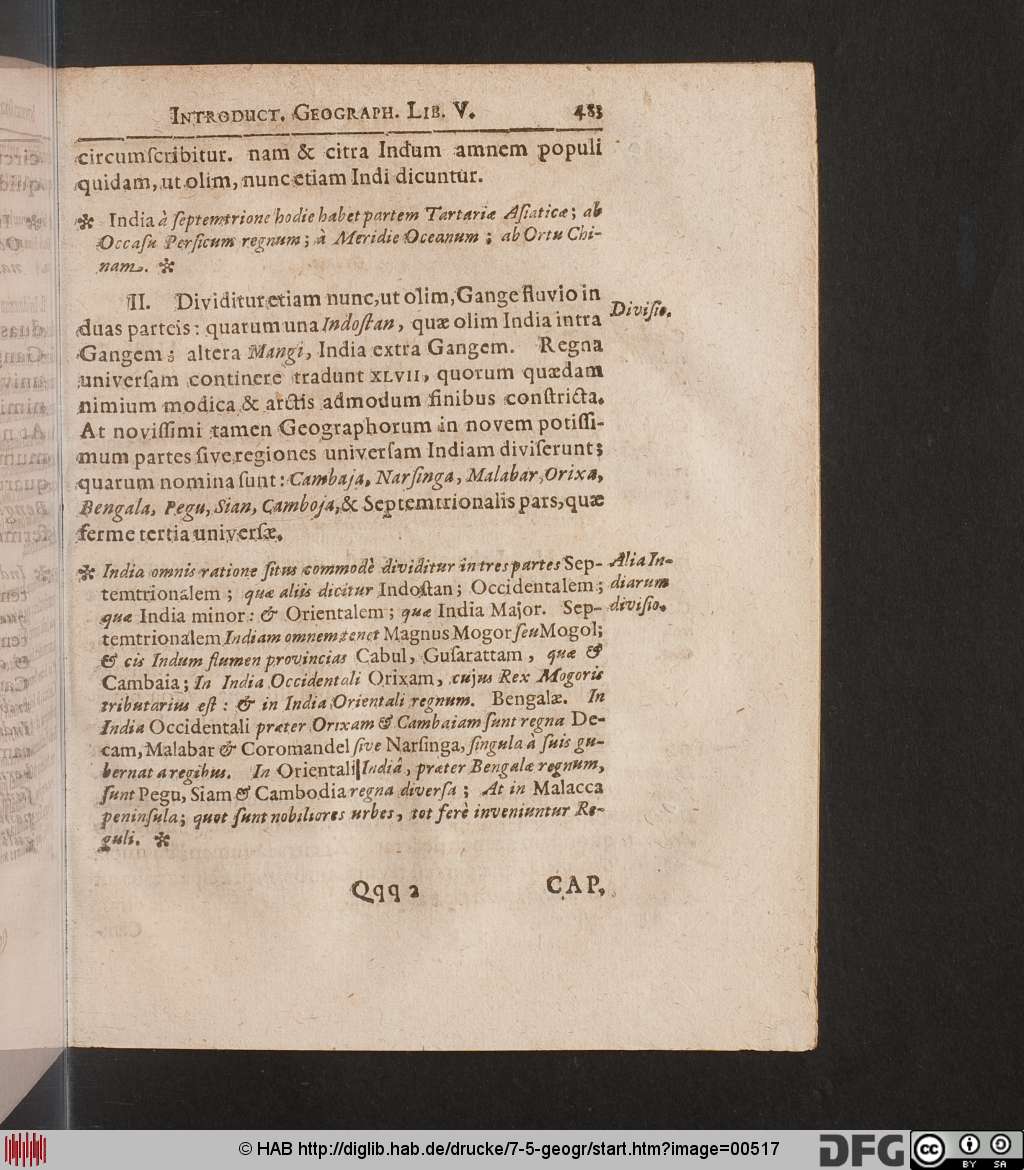 INTRODUCT. GEOGRAPH. LIB. V. 483
circumſcribitur. nam & citra Indum amnem populi
quidam, ut olim, nunc etiam Indi dicuntur.
✲ India à ſeptemtrione hodie habet partem Tartariæ Aſiaticæ; ab
Occaſu Perſicum regnum; à Meridie Oceanum; ab Ortu Chi-
nam. ✲
II. Dividitur etiam nunc, ut olim, Gange fluvio in
duas parteis: quarum una Indoſtan, quæ olim India intra
Diviſio.
Gangem; altera Mangi, India extra Gangem. Regna
univerſam continere tradunt XLVII, quorum quædam
nimium modica & arctis admodum finibus conſtricta.
At noviſſimi tamen Geographorum in novem potiſſi-
mum partes ſive regiones univerſam Indiam diviſerunt;
quarum nomina ſunt: Cambaja, Narſinga, Malabar, Orixa,
Bengala, Pegu, Sian, Camboja, & Septemtrionalis pars, quæ
ferme tertia univerſæ.
✲ India omnis ratione ſitus commodè dividitur in tres partes Sep-
temtrionalem; quæ aliis dicitur Indoſtan; Occidentalem; 
quæ India minor: & Orientalem; quæ India Major. Sep-
Alia In-
diarum
diviſio.
temtrionalem Indiam omnem tenet Magnus Mogor ſeu Mogol;
& cis Indum flumen provincias Cabul, Guſarattam, quæ &
Cambaia; In India Occidentali Orixam, cujus Rex Mogoris
tributarius eſt: & in India Orientali regnum. Bengalæ. In
India Occidentali præter Orixam & Cambaiam ſunt regna De-
cam, Malabar & Coromandel ſive Narſinga, ſingula à ſuis gu-
bernata regibus. In Orientali Indiâ, præter Bengalæ regnum,
ſunt Pegu, Siam & Cambodia regna diverſa; At in Malacca
peninſula; quot ſunt nobiliores urbes, tot ferè inveniuntur Re-
guli. ✲
Qqq 2 CAP.
© HAB http://diglib.hab.de/drucke/7-5-geogr/start.htm?image=00517
DFG
cc BY SA